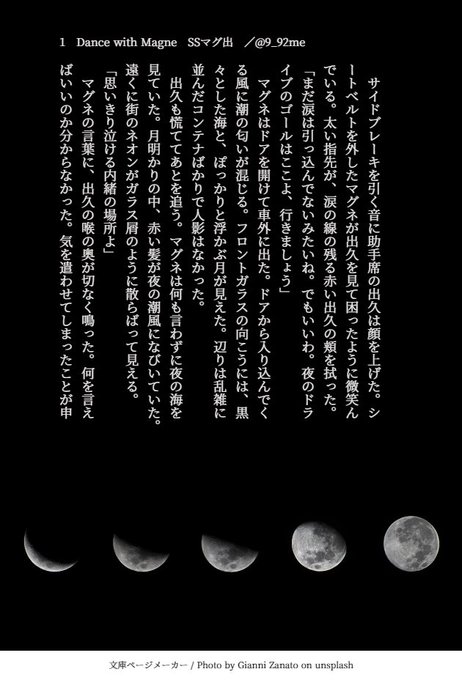 1 Dance with Magne SSマグ出 ／@9_92me
サイドブレーキを引く音に助手席の出久は顔を上げた。シ
ートベルトを外したマグネが出久を見て困ったように微笑ん
でいる。太い指先が、涙の線の残る赤い出久の頬を拭った。
「まだ涙は引っ込んでないみたいね。でもいいわ。夜のドラ
イブのゴールはここよ、行きましょう」
マグネはドアを開けて車外に出た。ドアから入り込んでく
る風に潮の匂いが混じる。フロントガラスの向こうには、黒
々とした海と、ぽっかりと浮かぶ月が見えた。辺りは乱雑に
並んだコンテナばかりで人影はなかった。
出久も慌ててあとを追う。マグネは何も言わずに夜の海を
見ていた。月明かりの中、赤い髪が夜の潮風になびいていた。
遠くに街のネオンがガラス屑のように散らばって見える。
「思いきり泣ける内緒の場所よ」
マグネの言葉に、出久の喉の奥が切なく鳴った。何を言え
ばいいのか分からなかった。気を遣わせてしまったことが申
文庫ページメーカー / Photo by Gianni Zanato on unsplash